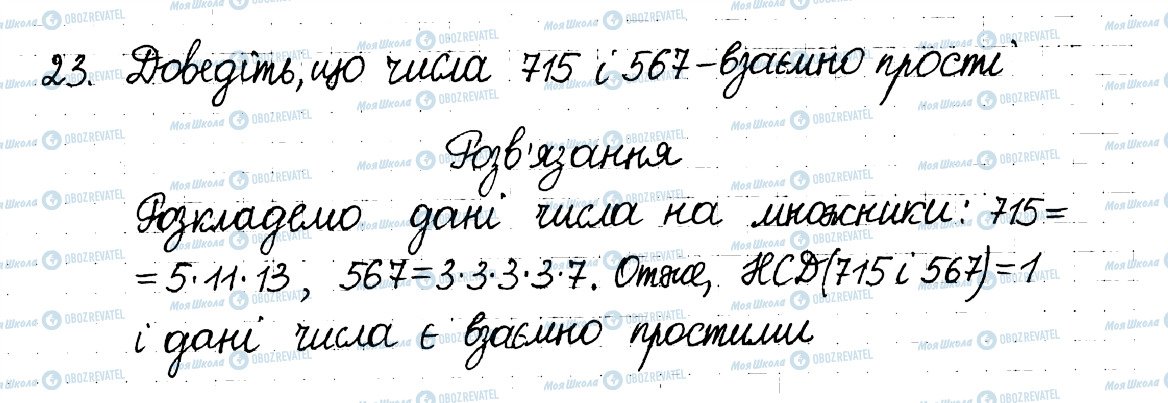 23. Доведіть, що числа 715 і 567 – взаємно прості
Розв'язання
Розкладемо дані числа на множники: 715=
=5·11·13; 567=3·3·3·3·7. Отже, НСD(715 і 567)=1
і дані числа є взаємно простими